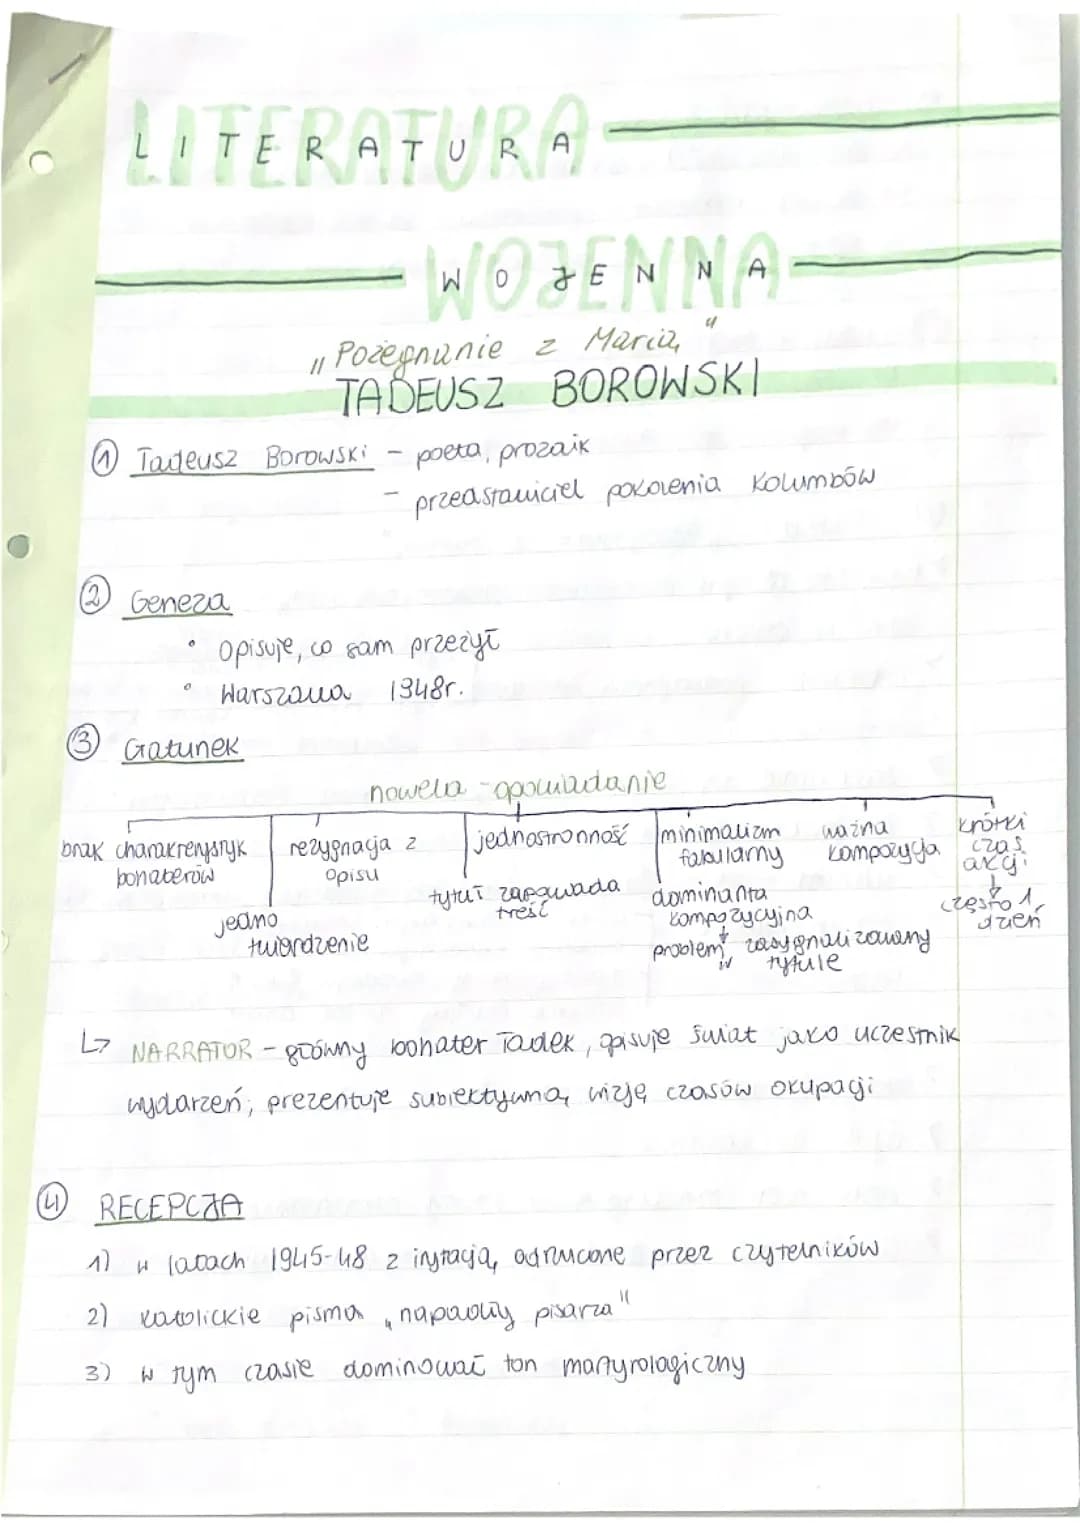 LITERATURA
WOJENNA
„Pożegnanie z Marią"
TADEUSZ BOROWSKI
① Tadeusz Borowski - poeta, prozaik
- przedstawiciel pokolenia Kolumbów
② Geneza
• Opisuje, co sam przeżył
• Warszawa 1948r.
③ Gatunek
nowela - opowiadanie
brak charakterystyk bohaterów
jedno twierdzenie
rezygnacja z opisu
jednostronność
tytuł zapowiada treść
minimalizm fabularny
dominanta kompozycyjna
↓
problem zasygnalizowany w tytule
ważna kompozycja
krótki czas akcji
↓
często 1 dzień
↳ NARRATOR - główny bohater Tadek, opisuje świat jako uczestnik
wydarzeń; prezentuje subiektywną wizję czasów okupacji
④ RECEPCJA
1) w latach 1945-48 z irytacją, odrzucone przez czytelników
2) katolickie pisma „napadły pisarza"
3) w tym czasie dominował ton martyrologiczny